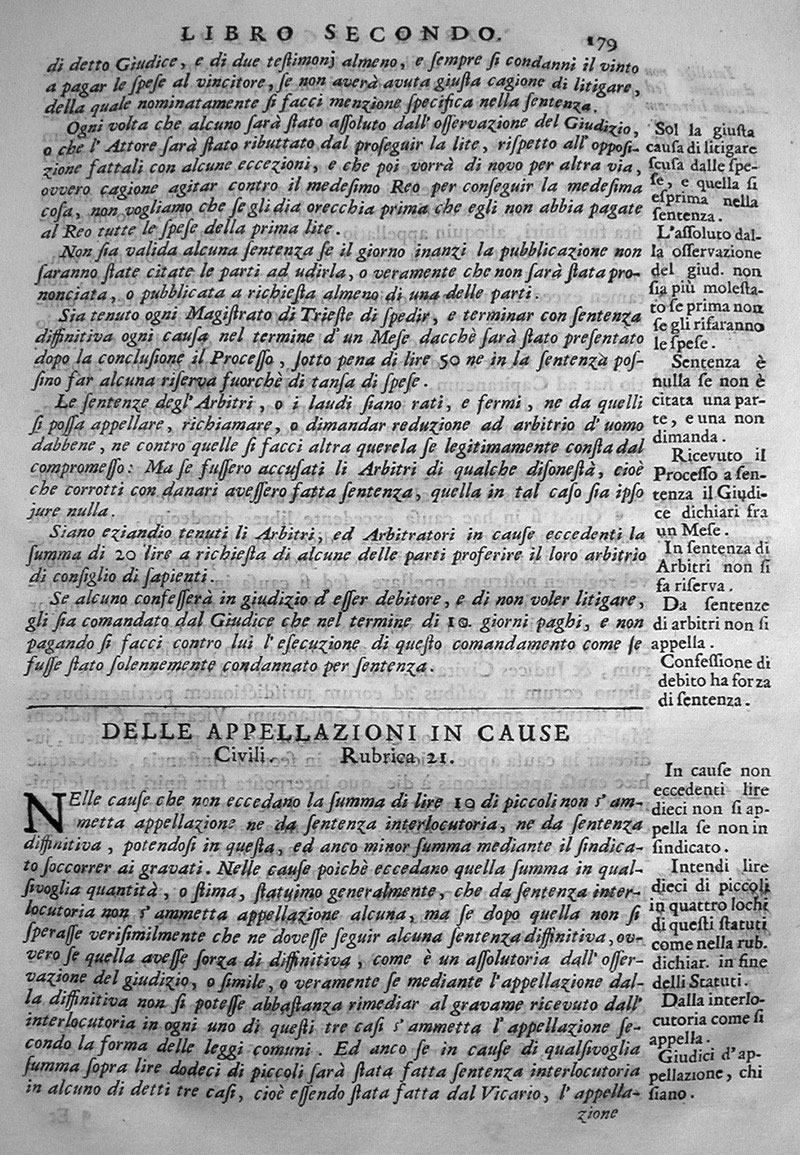 LIBRO SECONDO. 179
di detto Giudice, e di due teſtimonj almeno, e ſempre ſi condanni il vinto
a pagar le ſpeſe al vincitore, ſe non averà avuta giuſta cagione di litigare,
della quale nominatamente ſi facci menzione ſpecifica nella ſentenza.
Ogni volta che alcuno ſarà ſtato aſſoluto dall' oſſervazione del Giudizio,
o che l' Attore ſarà ſtato ributtato dal proſeguir la lite, riſpetto all' oppoſi-
zione fattali con alcune eccezioni, e che poi vorrà di novo per altra via,
ovvero cagione agitar contro il medeſimo Reo per conſeguir la medeſima
coſa, non vogliamo che ſe gli dia orecchia prima che egli non abbia pagate
al Reo tutte le ſpeſe della prima lite.
Non ſia valida alcuna ſentenza ſe il giorno inanzi la pubblicazione non
ſaranno ſtate citate le parti ad udirla, o veramente che non ſarà ſtata pro-
nonciata, o pubblicata a richieſta almeno di una delle parti.
Sia tenuto ogni Magiſtrato di Trieſte di ſpedir, e terminar con ſentenza
diffinitiva ogni cauſa nel termine d' un Meſe dacchè ſarà ſtato preſentato
dopo la concluſione il Proceſſo, ſotto pena di lire 50 ne in la ſentenza poſ-
ſino far alcuna riſerva fuorchè di tanſa di ſpeſe.
Le ſentenze degl' Arbitri, o i laudi ſiano rati, e fermi, ne da quelli
ſi poſſa appellare, richiamare, o dimandar reduzione ad arbitrio d' uomo
dabbene, ne contro quelle ſi facci altra querela ſe legitimamente conſta dal
compromeſſo: Ma ſe fuſſero accuſati li Arbitri di qualche diſoneſtà, cioè
che corrotti con danari aveſſero fatta ſentenza, quella in tal caſo ſia ipſo
jure nulla.
Siano eziandio tenuti li Arbitri, ed Arbitratori in cauſe eccedenti la
ſumma di 20 lire a richieſta di alcune delle parti proferire il loro arbitrio
di conſiglio di ſapienti.
Se alcuno confeſſerà in giudizio d' eſſer debitore, e di non voler litigare,
gli ſia comandato dal Giudice che nel termine di 10. giorni paghi, e non
pagando ſi facci contro lui l' eſecuzione di queſto comandamento come ſe
fuſſe ſtato ſolennemente condannato per ſentenza.
Sol la giuſta
cauſa di litigare
ſcuſa dalle ſpe-
ſe, e quella ſi
eſprima nella
ſentenza.
L'aſſoluto dal-
la oſſervazione
del giud. non
ſia più moleſta-
to ſe prima non
ſe gli rifaranno
le ſpeſe.
Sentenza è
nulla ſe non è
citata una par-
te, e una non
dimanda.
Ricevuto il
Proceſſo a ſen-
tenza il Giudi-
ce dichiari fra
un Meſe.
In ſentenza di
Arbitri non ſi
fa riſerva.
Da ſentenze
di arbitri non ſi
appella.
Confeſſione di
debito ha forza
di ſentenza.
DELLE APPELLAZIONI IN CAUSE
Civili. Rubrica 21.
NElle cauſe che non eccedano la ſumma di lire 10 di piccoli non s' am-
metta appellazione ne da ſentenza interlocutoria, ne da ſentenza
diffinitiva, potendoſi in queſta, ed anco minor ſumma mediante il ſindica-
to ſoccorrer ai gravati. Nelle cauſe poichè eccedano quella ſumma in qual-
ſivoglia quantità, o ſtima, ſtatuimo generalmente, che da ſentenza inter-
locutoria non s' ammetta appellazione alcuna, ma ſe dopo quella non ſi
ſperaſſe veriſimilmente che ne doveſſe ſeguir alcuna ſentenza diffinitiva, ov-
vero ſe quella aveſſe forza di diffinitiva, come è un aſſolutoria dall' oſſer-
vazione del giudizio, o ſimile, o veramente ſe mediante l'appellazione dal-
la diffinitiva non ſi poteſſe abbaſtanza rimediar al gravame ricevuto dall'
interlocutoria in ogni uno di queſti tre caſi s' ammetta l' appellazione ſe-
condo la forma delle leggi comuni. Ed anco ſe in cauſe di qualſivoglia
ſumma ſopra lire dodeci di piccoli ſarà ſtata fatta ſentenza interlocutoria
in alcuno di detti tre caſi, cioè eſſendo ſtata fatta dal Vicario, l' appella-
zione
In cauſe non
eccedenti lire
dieci non ſi ap-
pella ſe non in
ſindicato.
Intendi lire
dieci di piccoli
in quattro lochi
di queſti ſtatuti
come nella rub.
dichiar. in fine
delli Statuti.
Dalla interlo-
cutoria come ſi
appella.
Giudici d'ap-
pellazione, chi
ſiano.